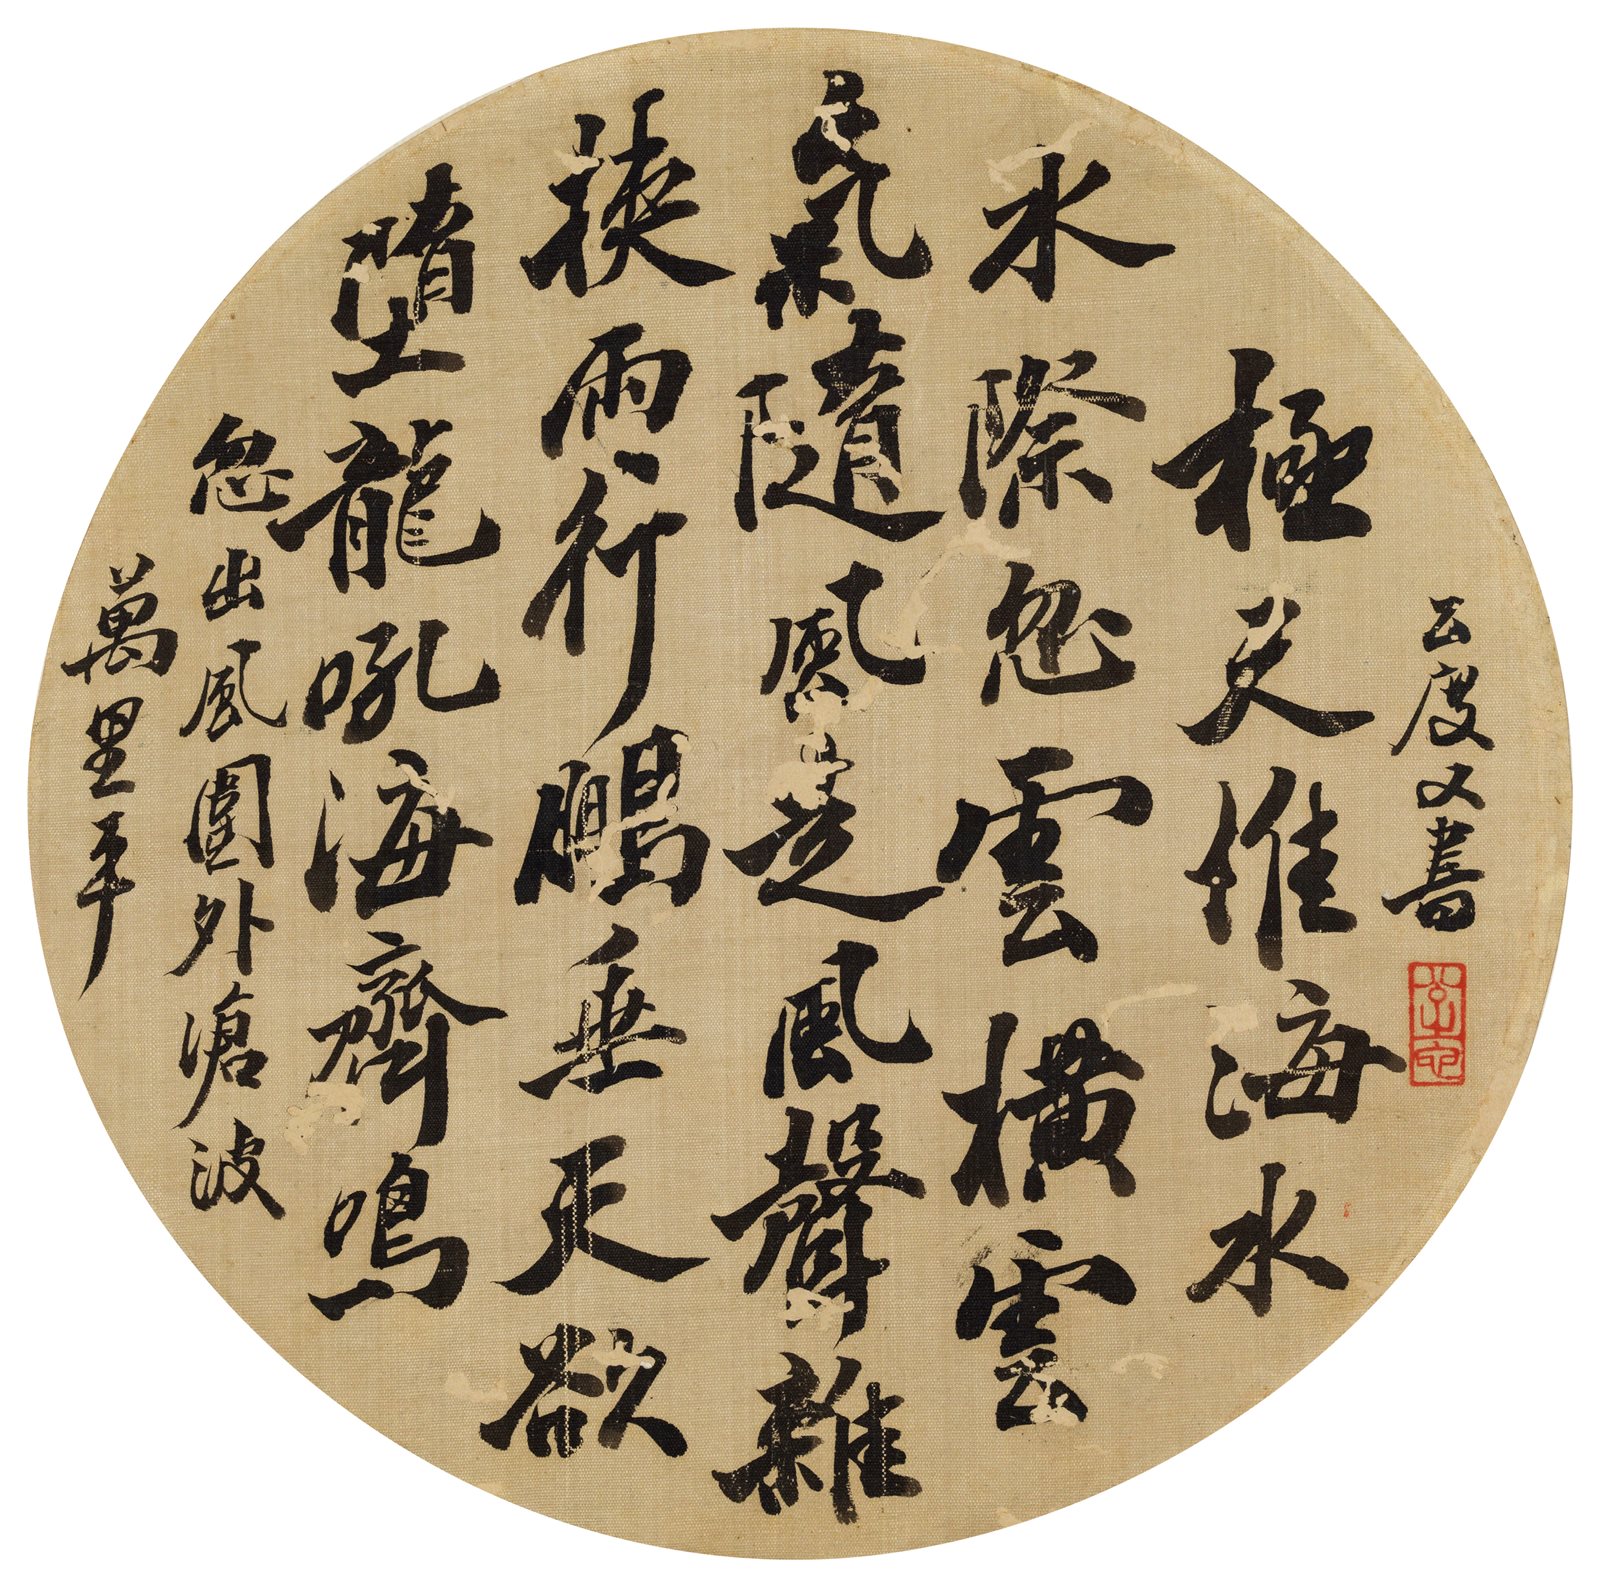 公度又書
極天惟海水
水際忽雲橫雲
氣隨風走風聲雜
挾雨行鵬垂天欲
墮龍吼海齊鳴
忽出風圍外滄波
萬里平